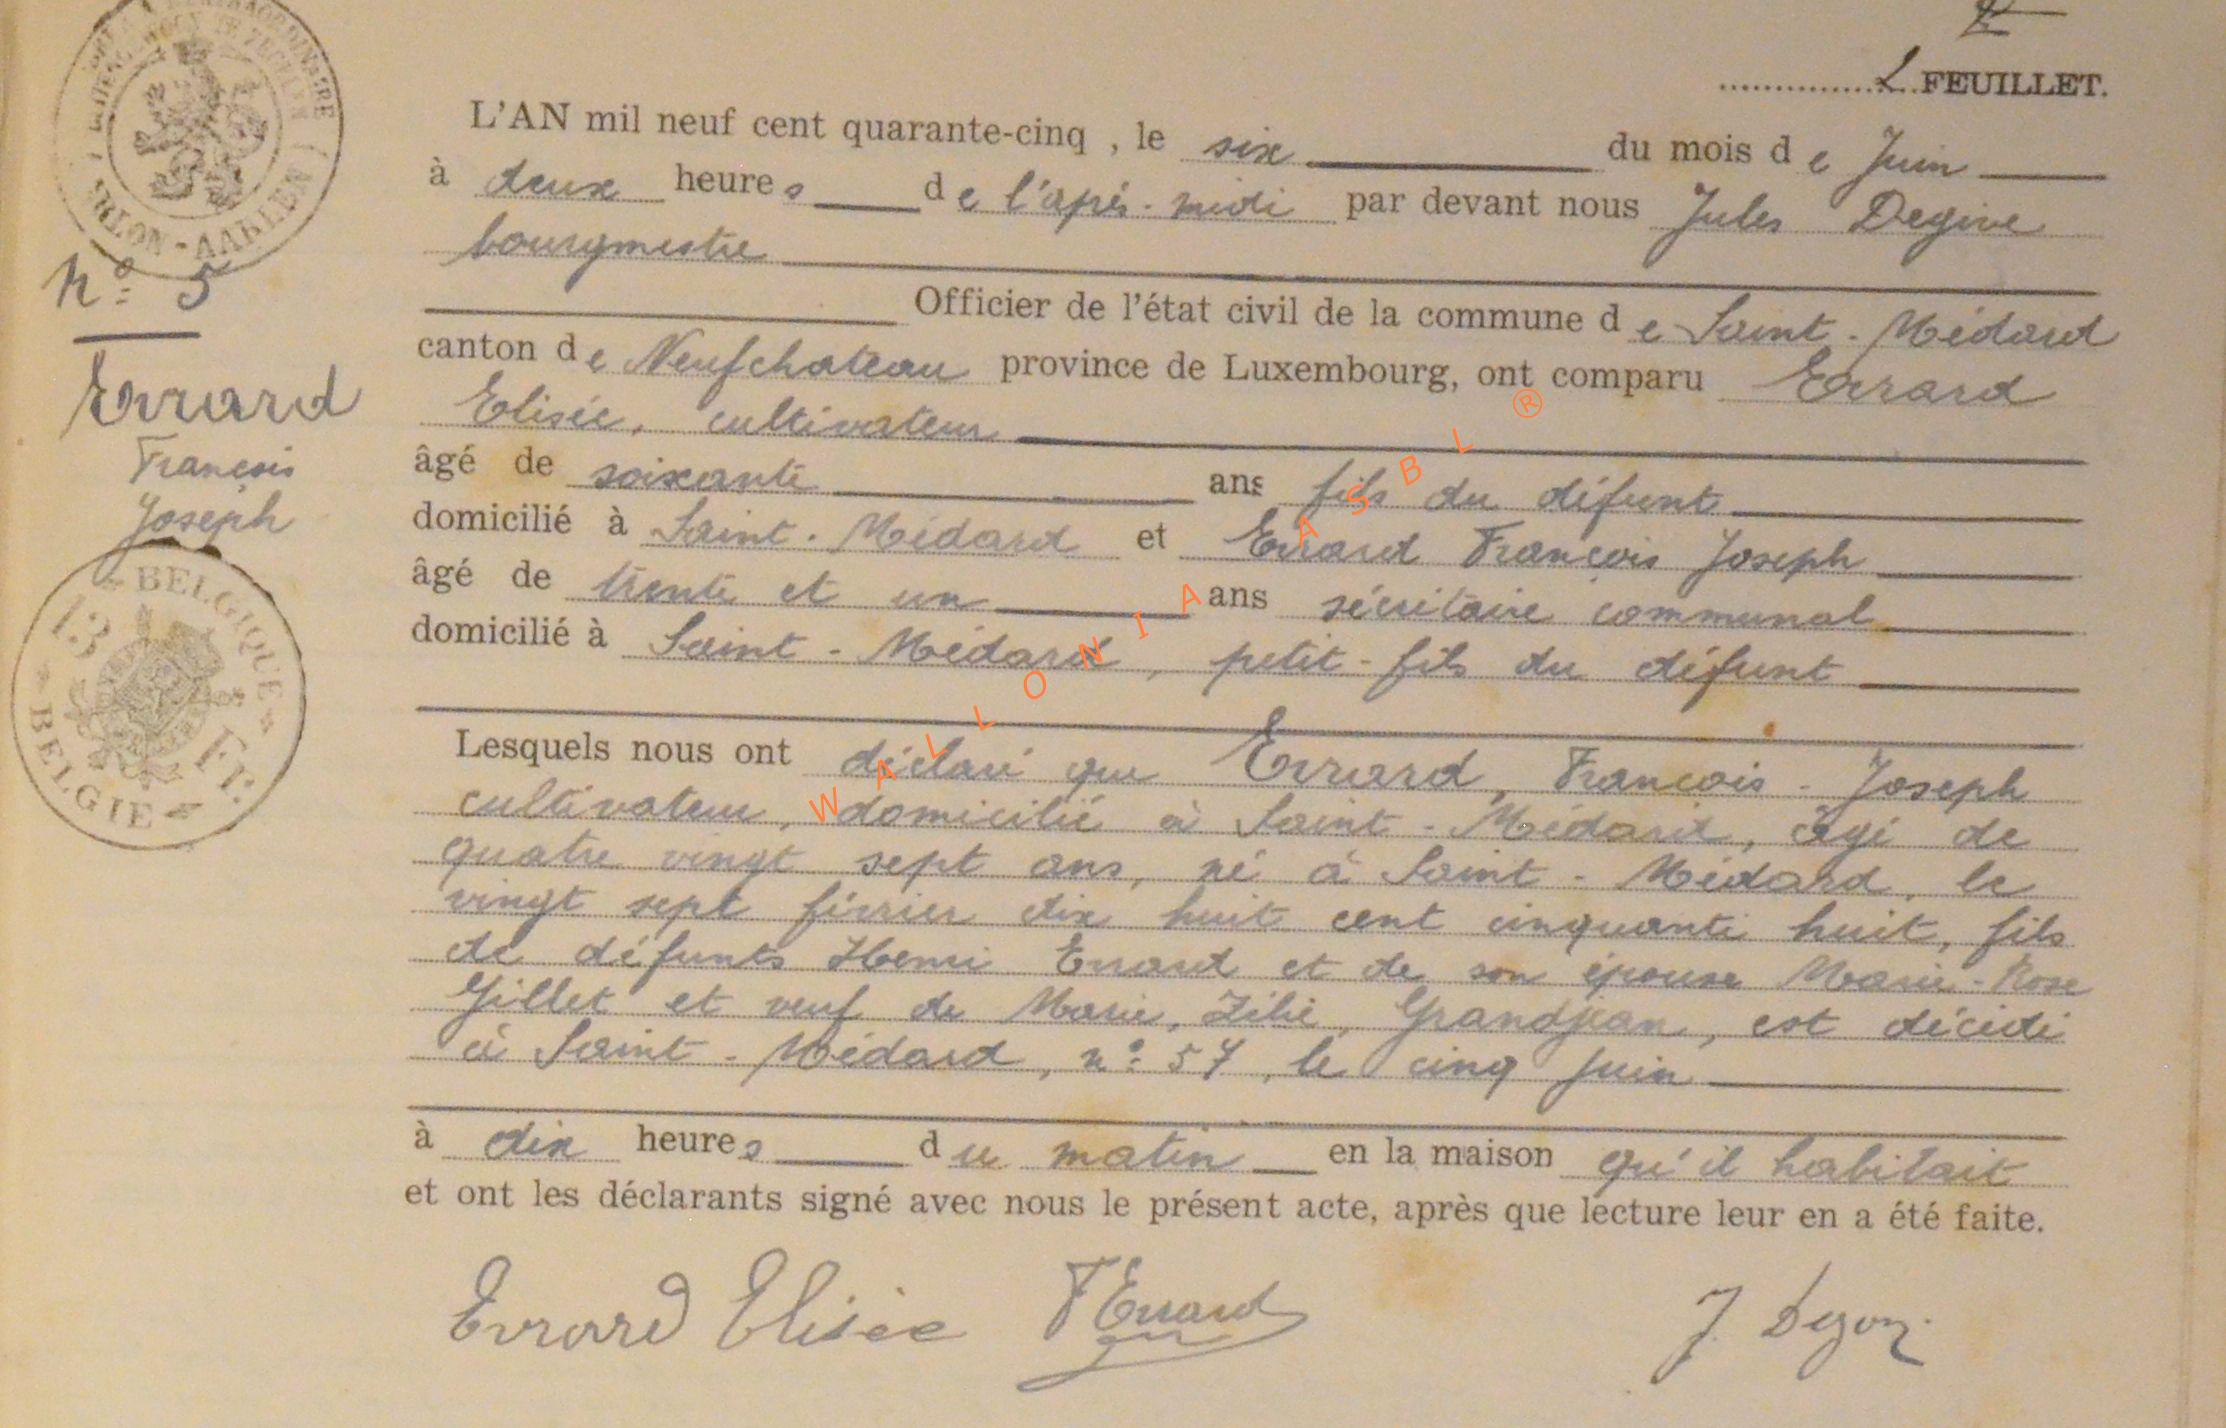 2 FEUILLET.
L'AN mil neuf cent quarante-cinq , le six du mois de Juin
à deux heures de l'apés-midi par devant nous Jules Degive
bourgmestre
Officier de l'état civil de la commune de Saint-Médard
canton de Neufchateau province de Luxembourg, ont comparu Evrard
Elisée, cultivateur
âgé de soixante ans fils du défunt
domicilié à Saint-Médard et Evrard François Joseph
âgé de trente et un ans sécrétaire communal
domicilié à Saint-Médard, petit-fils du défunt
Lesquels nous ont déclaré que Evrard, François-Joseph
cultivateur, domicilié à Saint-Médard, âgé de
quatre vingt sept ans, né à Saint-Médard, le
vingt sept février dix huit cent cinquante huit, fils
de défunts Henri Evrard et de son épouse Marie-Rose
Gillet et veuf de Marie, Zélie, Grandjean, est décédé
à Saint-Médard, n° 57, le cinq juin
à dix heures du matin en la maison qu'il habitait
et ont les déclarants signé avec nous le présent acte, après que lecture leur en a été faite.
Evrard Elisée F Evrard J. Degive
N° 5
Evrard
François
Joseph
BELGIQUE
13 Fr.
BELGIE
ARLON-AARLEN
WALLONIA ASBL ®